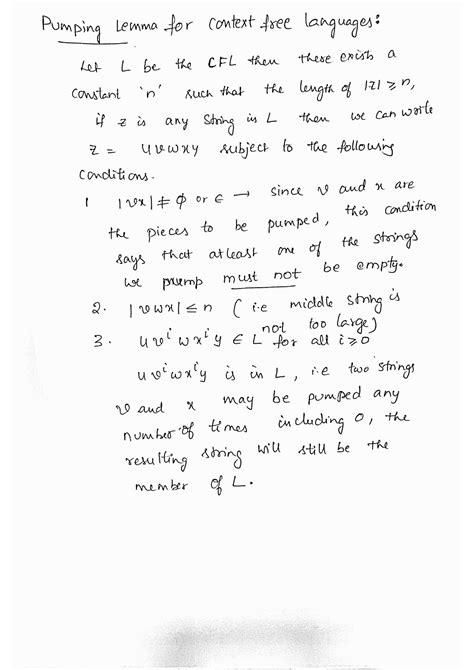 Pumping Lemma for context free languages:
Let L be the CFL then there exists a
constant 'n' such that the length of |z| ≥ n,
if z is any string in L then we can write
z = uvwxy subject to the following
conditions.
1 |vx| ≠ ϕ or ε → since v and x are
the pieces to be pumped, this condition
says that atleast one of the strings
we pump must not be empty.
2. |vwx| ≤ n (i.e middle string is
not too large)
3. uvⁱwxⁱy ∈ L for all i≥0
uvⁱwxⁱy is in L, i.e two strings
v and x may be pumped any
number of times including 0, the
resulting string will still be the
member of L.